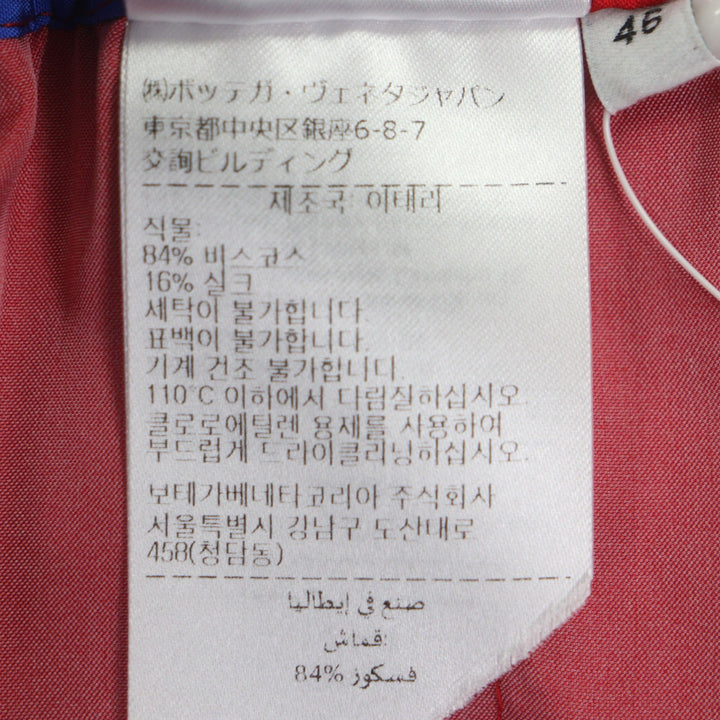 46
㈱ボッテガ・ヴェネタジャパン
東京都中央区銀座6-8-7
交詢ビルディング
제조국: 이태리
직물:
84% 비스코스
16% 실크
세탁이 불가합니다.
표백이 불가합니다.
기계 건조 불가합니다.
110°C 이하에서 다림질하십시오.
클로로에틸렌 용제를 사용하여
부드럽게 드라이클리닝하십시오.
보테가베네타코리아 주식회사
서울특별시 강남구 도산대로
458(청담동)
صنع في إيطاليا
قماش:
84% فسكوز